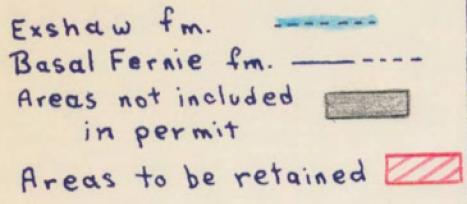 Exshaw fm.
Basal Fernie fm.
Areas not included
in permit
Areas to be retained